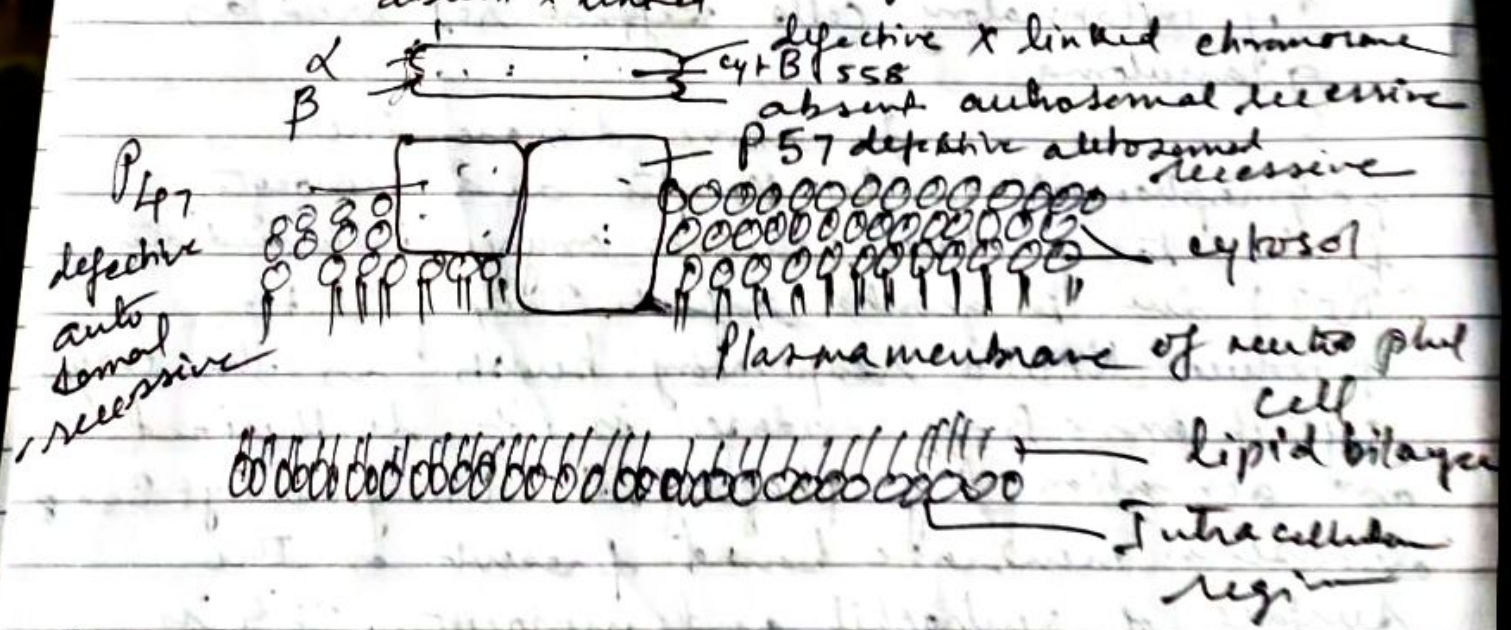 α
defective X linked chromosome
cyt B 558
β
absent autosomal recessive
P 57 defective autosomal
recessive
P47
defective
auto
somal
recessive
cytosol
Plasma membrane of neutro phil
cell
lipid bilayer
Intracellular
region